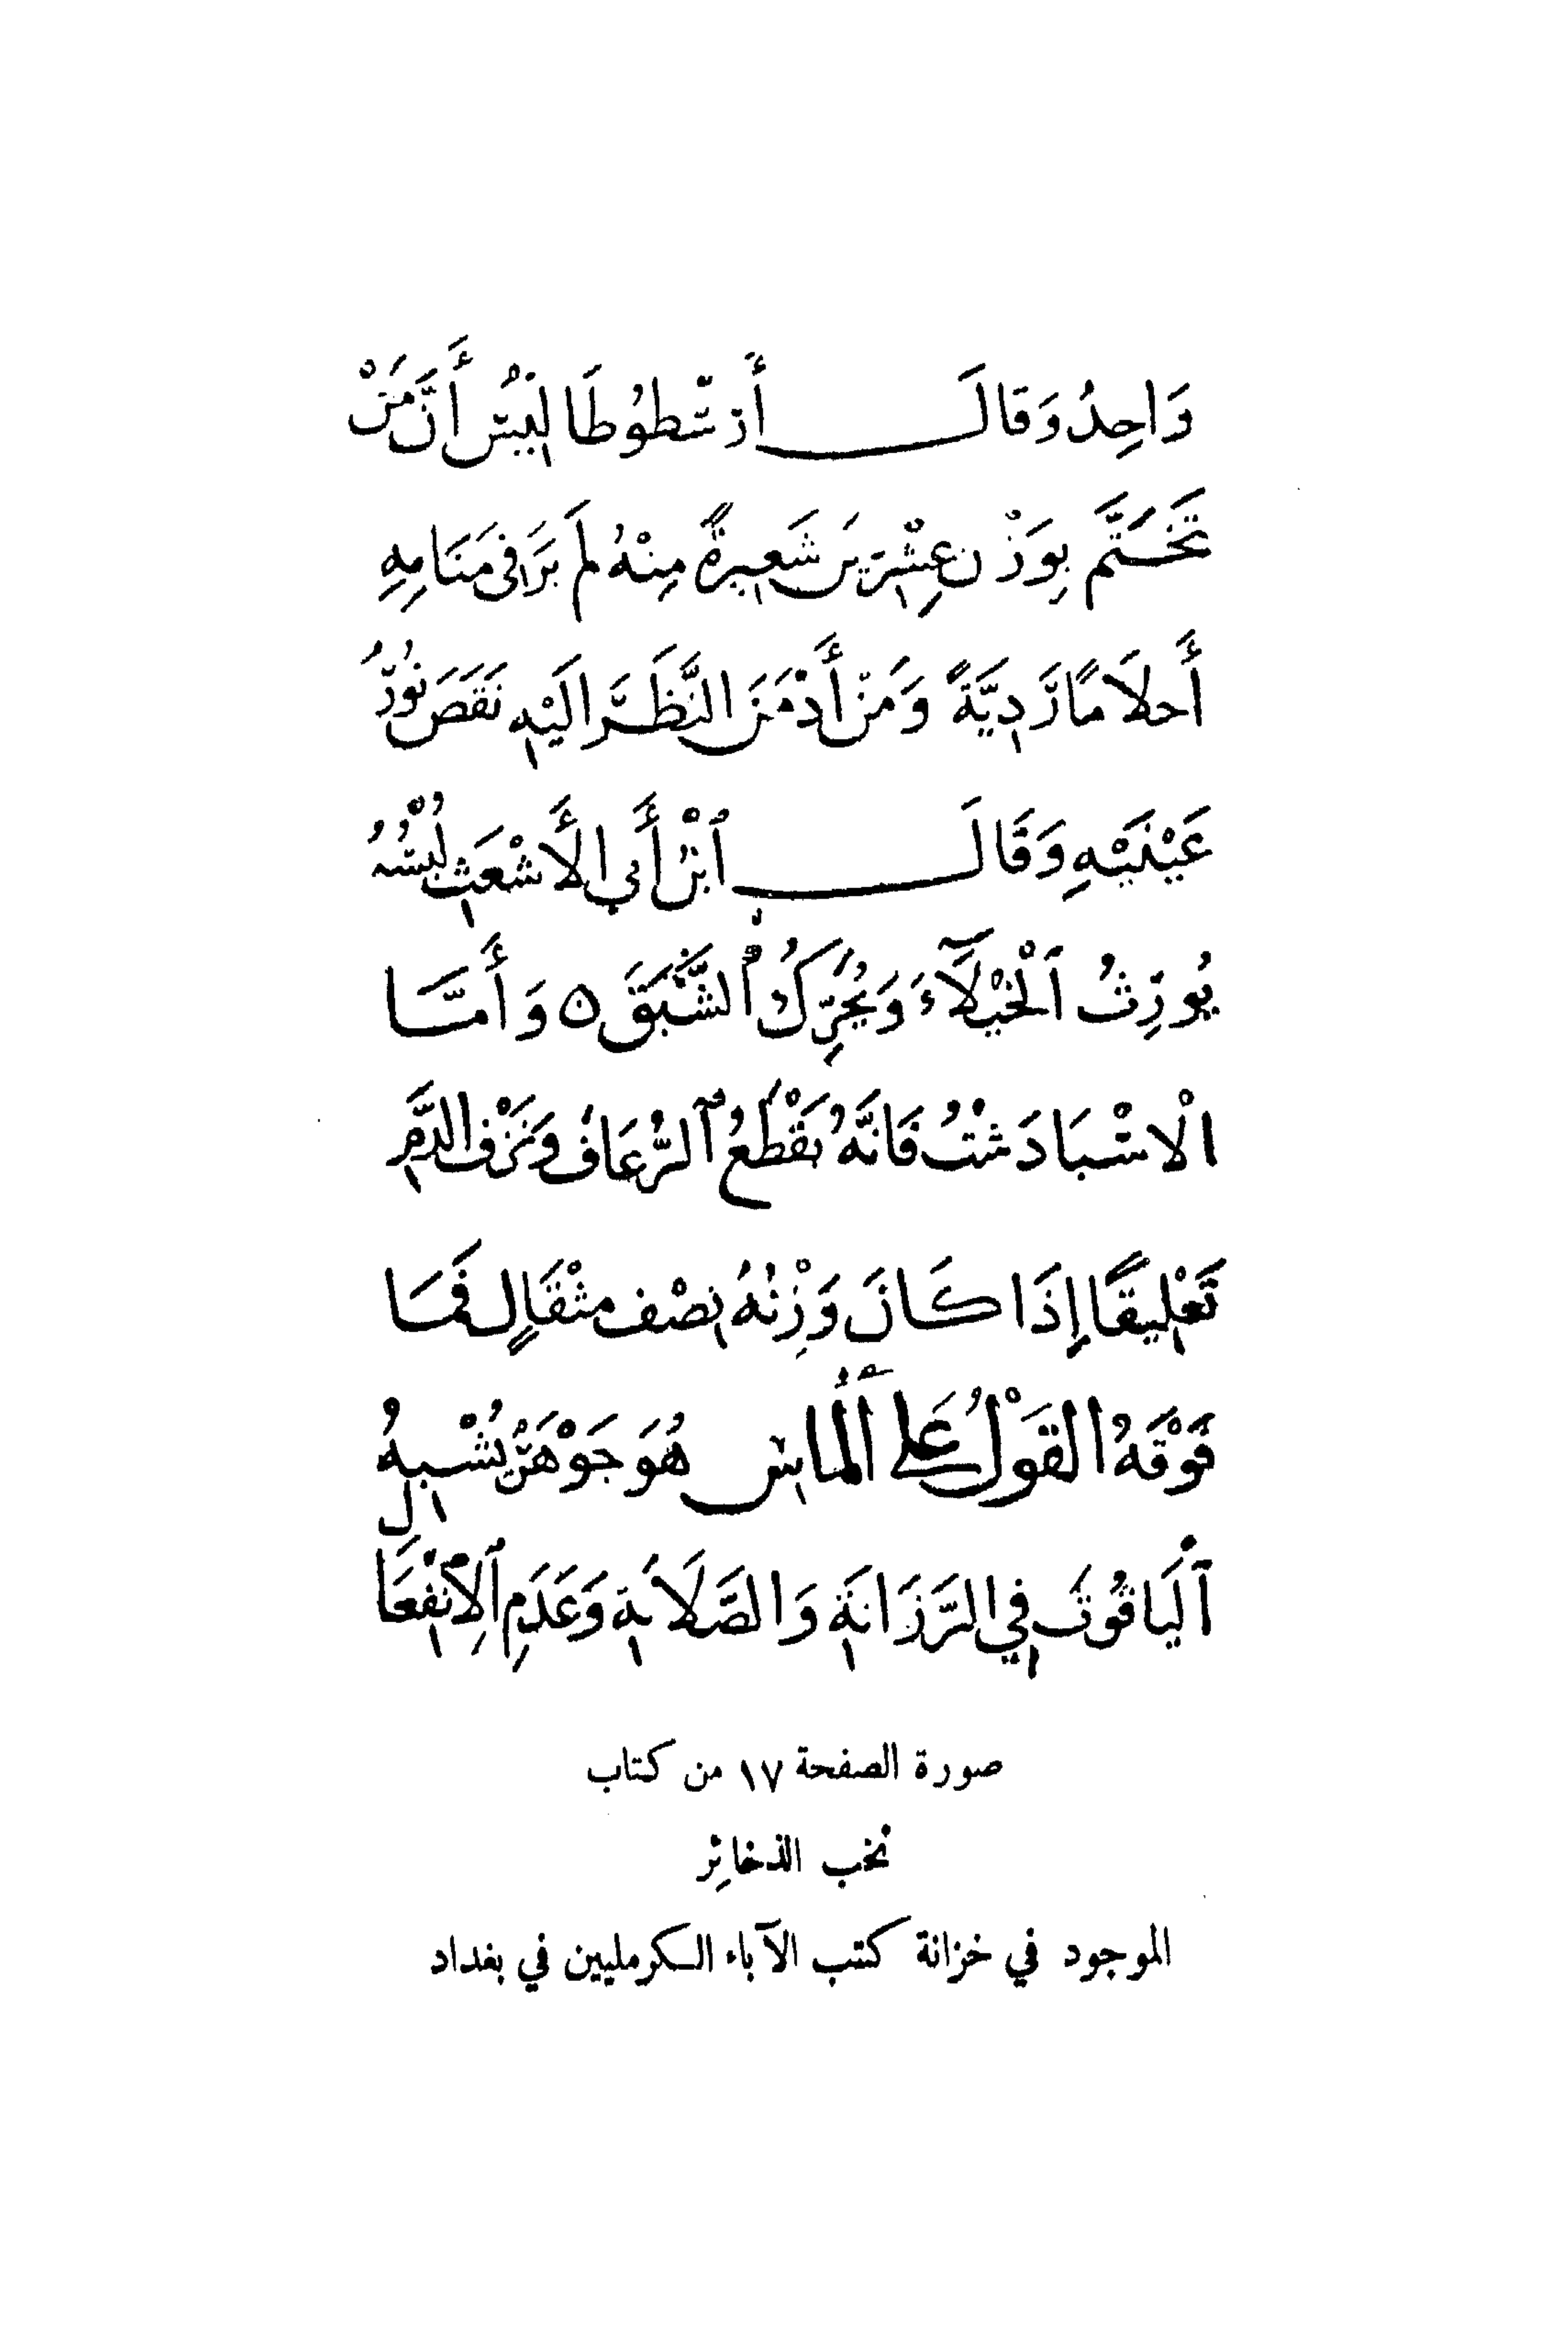 وَاحِدُ وَقَالَ أَرسْطُوطَالِيسُ أَنَّ مَنْ
تَخَتَّمَ بِوَزْنِ عِشْرِينَ شَعِيرَةً مِنْهُ لَمْ يَرَ فِى مَنَامِهِ
أَحلَامًا رَّدِيَّةً وَمَنْ أَدْمَنَ النَّظَرَ الَيْهِ نَقَصَ نُورُ
عَيْنَيْهِ وَقَالَ ٱبْنُ أَبِي الأَشْعَثِ لُبْسُهُ
يُورِثُ ٱلْخُيْلَآءَ وَيُحَرِّكُ ٱلشَّبَقَ ٥ وَأَمَّا
الْاسْبَادَشْتُ فَانَّهُ يَقْطَعُ ٱلرُّعَافَ وَنَزْفَ الدَّمِ
تَعْلِيقًا إِذَا كَانَ وَزْنُهُ نِصْف مثْقَالٍ فَمَا
فَوْقَهُ القَوْلُ عَلَى أَلْمَاسِ هُوَ جَوْهَرٌ يُشْبِهُ
ٱليَاقُوتَ فِي الرَّزَانَةِ وَالصَّلَابَةِ وَعَدَمِ ٱلِانْفِعَالِ
صورة الصفحة ١٧ من كتاب
نخب الذخائر
الموجود في خزانة كتب الآباء الكرمليين في بغداد